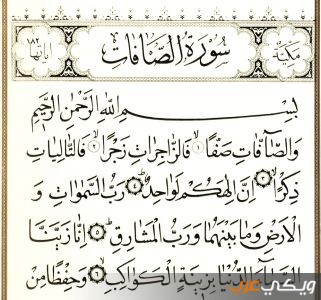 مكية سورة الصافات آياتها ١٨٢
بسم الله الرحمن الرحيم
وَالصَّافَّاتِ صَفًّا ١ فَالزَّاجِرَاتِ زَجْرًا ٢ فَالتَّالِيَاتِ
ذِكْرًا ٣ اِنَّ اِلٰهَكُمْ لَوَاحِدٌ ٤ رَبُّ السَّمٰوَاتِ وَ
الْاَرْضِ وَمَا بَيْنَهُمَا وَرَبُّ الْمَشَارِقِ ٥ اِنَّا زَيَّنَّا
السَّمَاءَ الدُّنْيَا بِزِينَةٍ الْكَوَاكِبِ ٦ وَحِفْظًا مِنْ
ويكي عربي